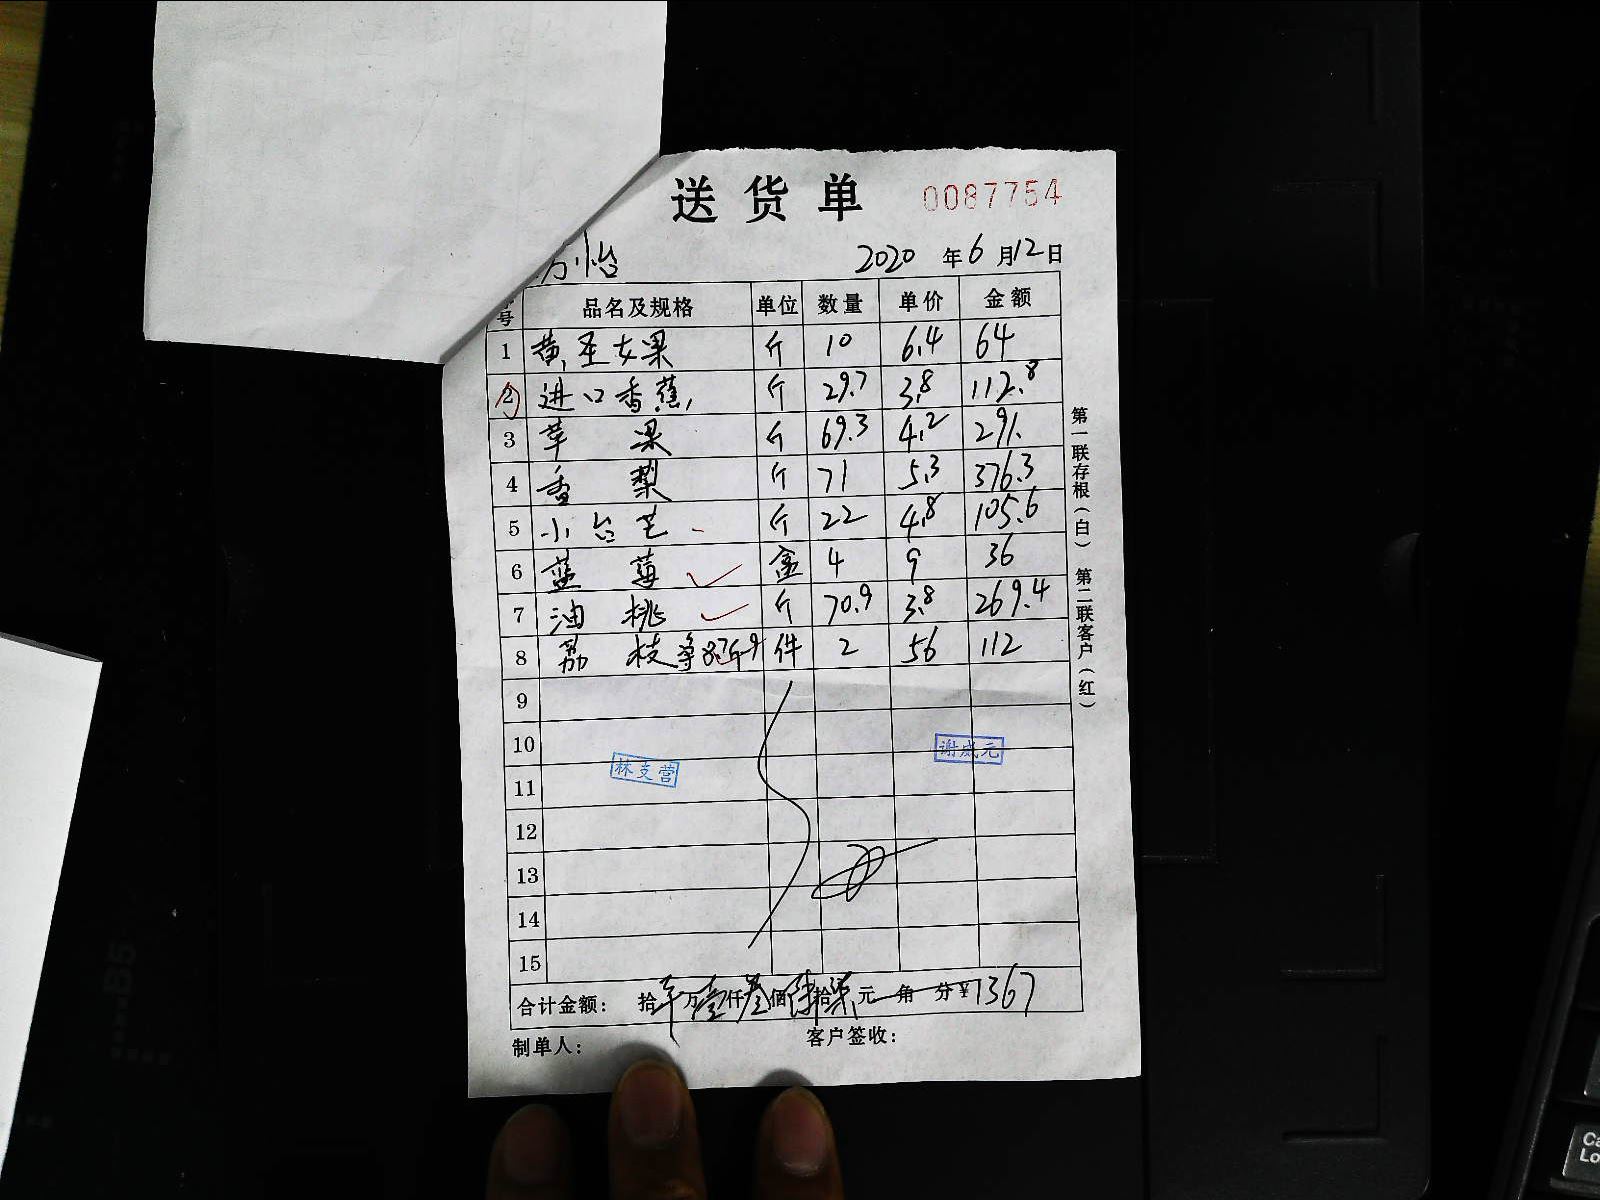 送货单 0087754
万怡 2020 年 6 月 12 日
号 品名及规格 单位 数量 单价 金额
1 黄圣女果 斤 10 6.4 64
2 进口香蕉 斤 29.7 3.8 112.8
3 苹果 斤 69.3 4.2 291.
4 香梨 斤 71 5.3 376.3
5 小台芒 斤 22 4.8 105.6
6 蓝莓 盒 4 9 36
7 油桃 斤 70.9 3.8 269.4
8 荔枝 件 2 56 112
9
10 谢成元
11 林支营
12
13
14
15
合计金额: 拾 万壹仟叁佰陆拾柒元 角 分¥1367
制单人: 客户签收:
第一联存根(白) 第二联客户(红)
B5